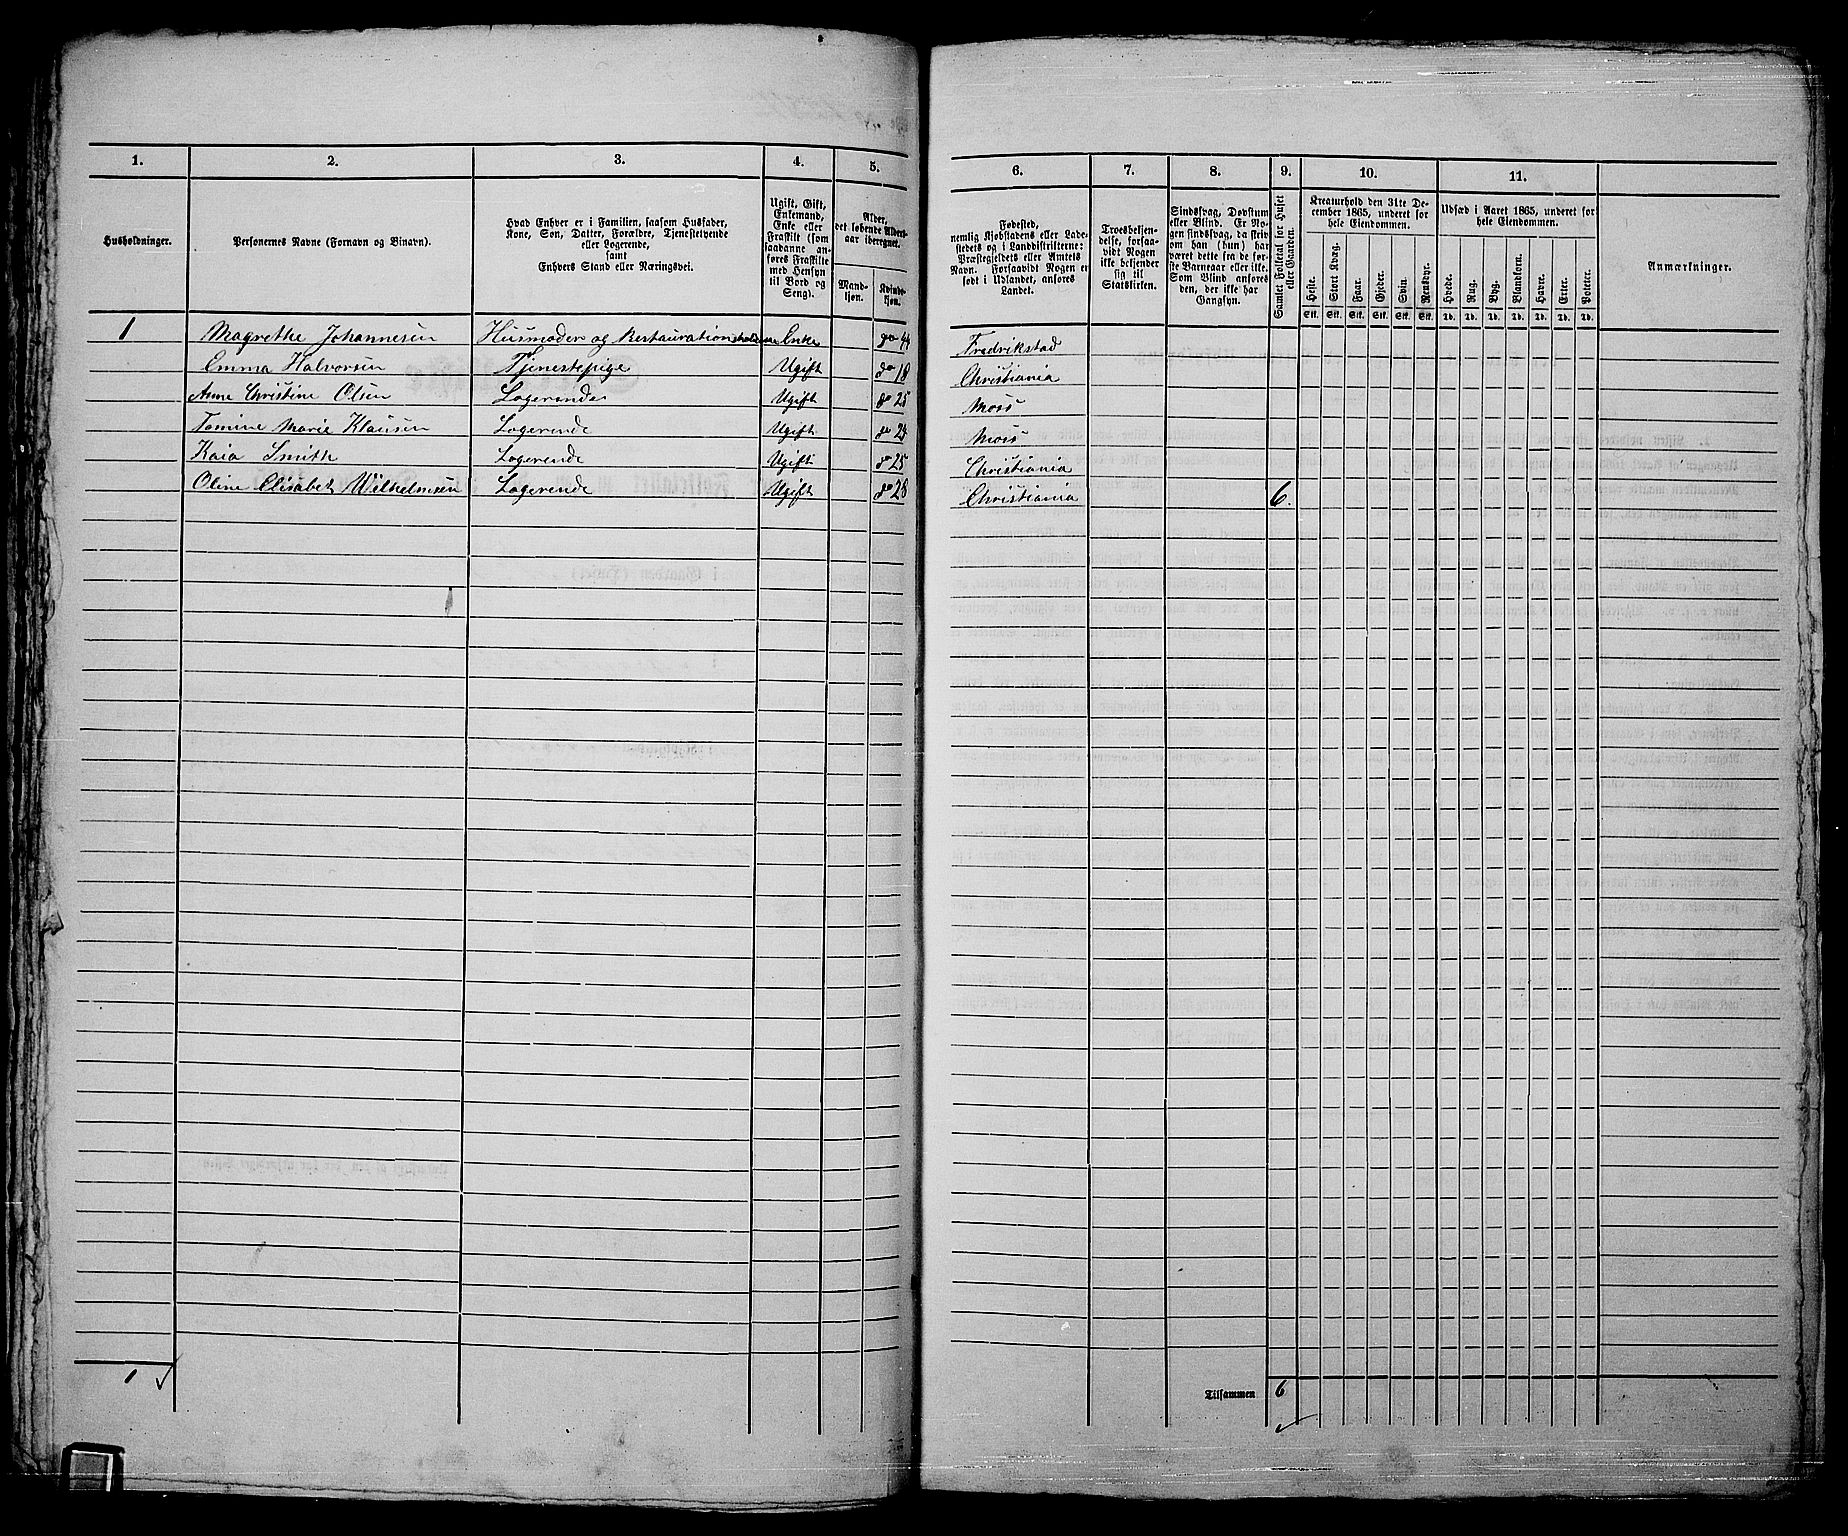 1. 2. 3. 4. 5. 6. 7. 8. 9. 10. 11.
Husholdninger.
Personernes Navne (Fornavn og Binavn).
Hvad Enhver er i Familien, saasom Husfader,
Kone, Søn, Datter, Forældre, Tjenestetyende
eller Logerende,
samt
Enhvers Stand eller Næringsvei.
Ugift, Gift,
Enkemand,
Enke eller
Fraskilt (som
saadanne an-
føres Fraskilte
med Hensyn
til Bord og
Seng).
Alder,
det løbende Alders-
aar iberegnet.
Mand-
kjøn.
Kvinde-
kjøn.
Fødested,
nemlig Kjøbstadens eller Lade-
stedets og i Landdistrikterne:
Præstegjeldets eller Amtets
Navn. Forsaavidt Nogen er
født i Udlandet, anføres
Landet.
Troesbekjen-
delse, forsaa-
vidt Nogen
ikke bekjender
sig til
Statskirken.
Sindssvag, Døvstum
eller Blind. Er No-
gen sindssvag, da skriv
om han (hun) har
været dette fra de før-
ste Barneaar eller ikke.
Som Blind anføres
den, der ikke har
Gangsyn.
Samlet Folketal for Huset
eller Gaarden.
Kreaturhold den 31te De-
cember 1865, underet for
hele Eiendommen.
Heste. Stort Kvæg. Faar. Gjeder. Svin. Rensdyr.
Stk. Stk. Stk. Stk. Stk. Stk.
Udsæd i Aaret 1865, underet for
hele Eiendommen.
Hvede. Rug. Byg. Blandkorn. Havre. Erter. Poteter.
Td. Td. Td. Td. Td. Td. Td.
Anmærkninger.
1 Magrethe Johannesen Husmoder og Restauration Enke 44 Fredrikstad
Emma Halvorsen Tjenestepige Ugift 18 Christiania
Anne Christine Olsen Logerende Ugift 25 Moss
Tomine Marie Klausen Logerende Ugift Moss
Kaia Smith Logerende Ugift 25 Christiania
Oline Elisabet Wilhelmsen Logerende Ugift 28 Christiania 6.
1
Tilsammen 6